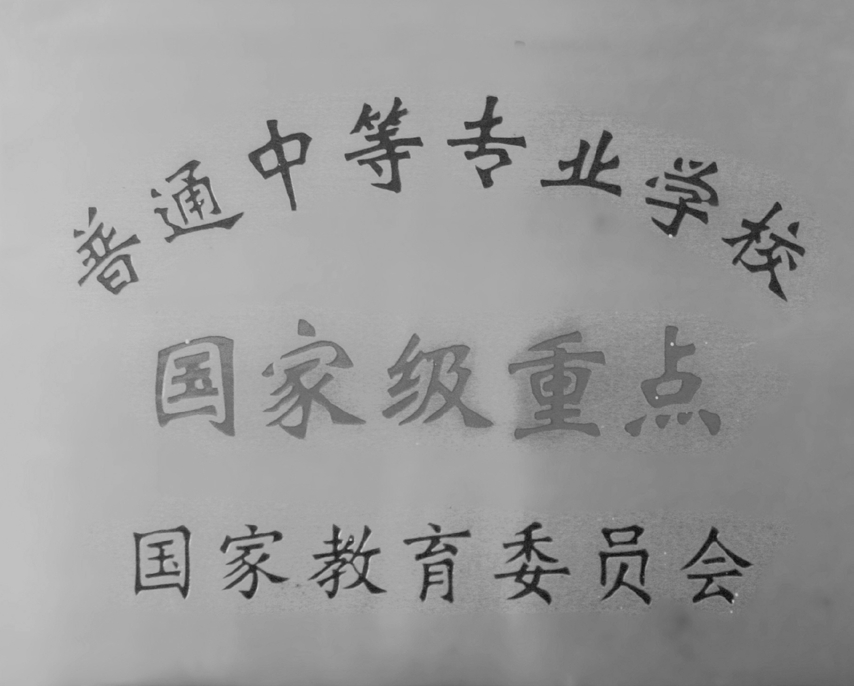 普通中等专业学校
国家级重点
国家教育委员会